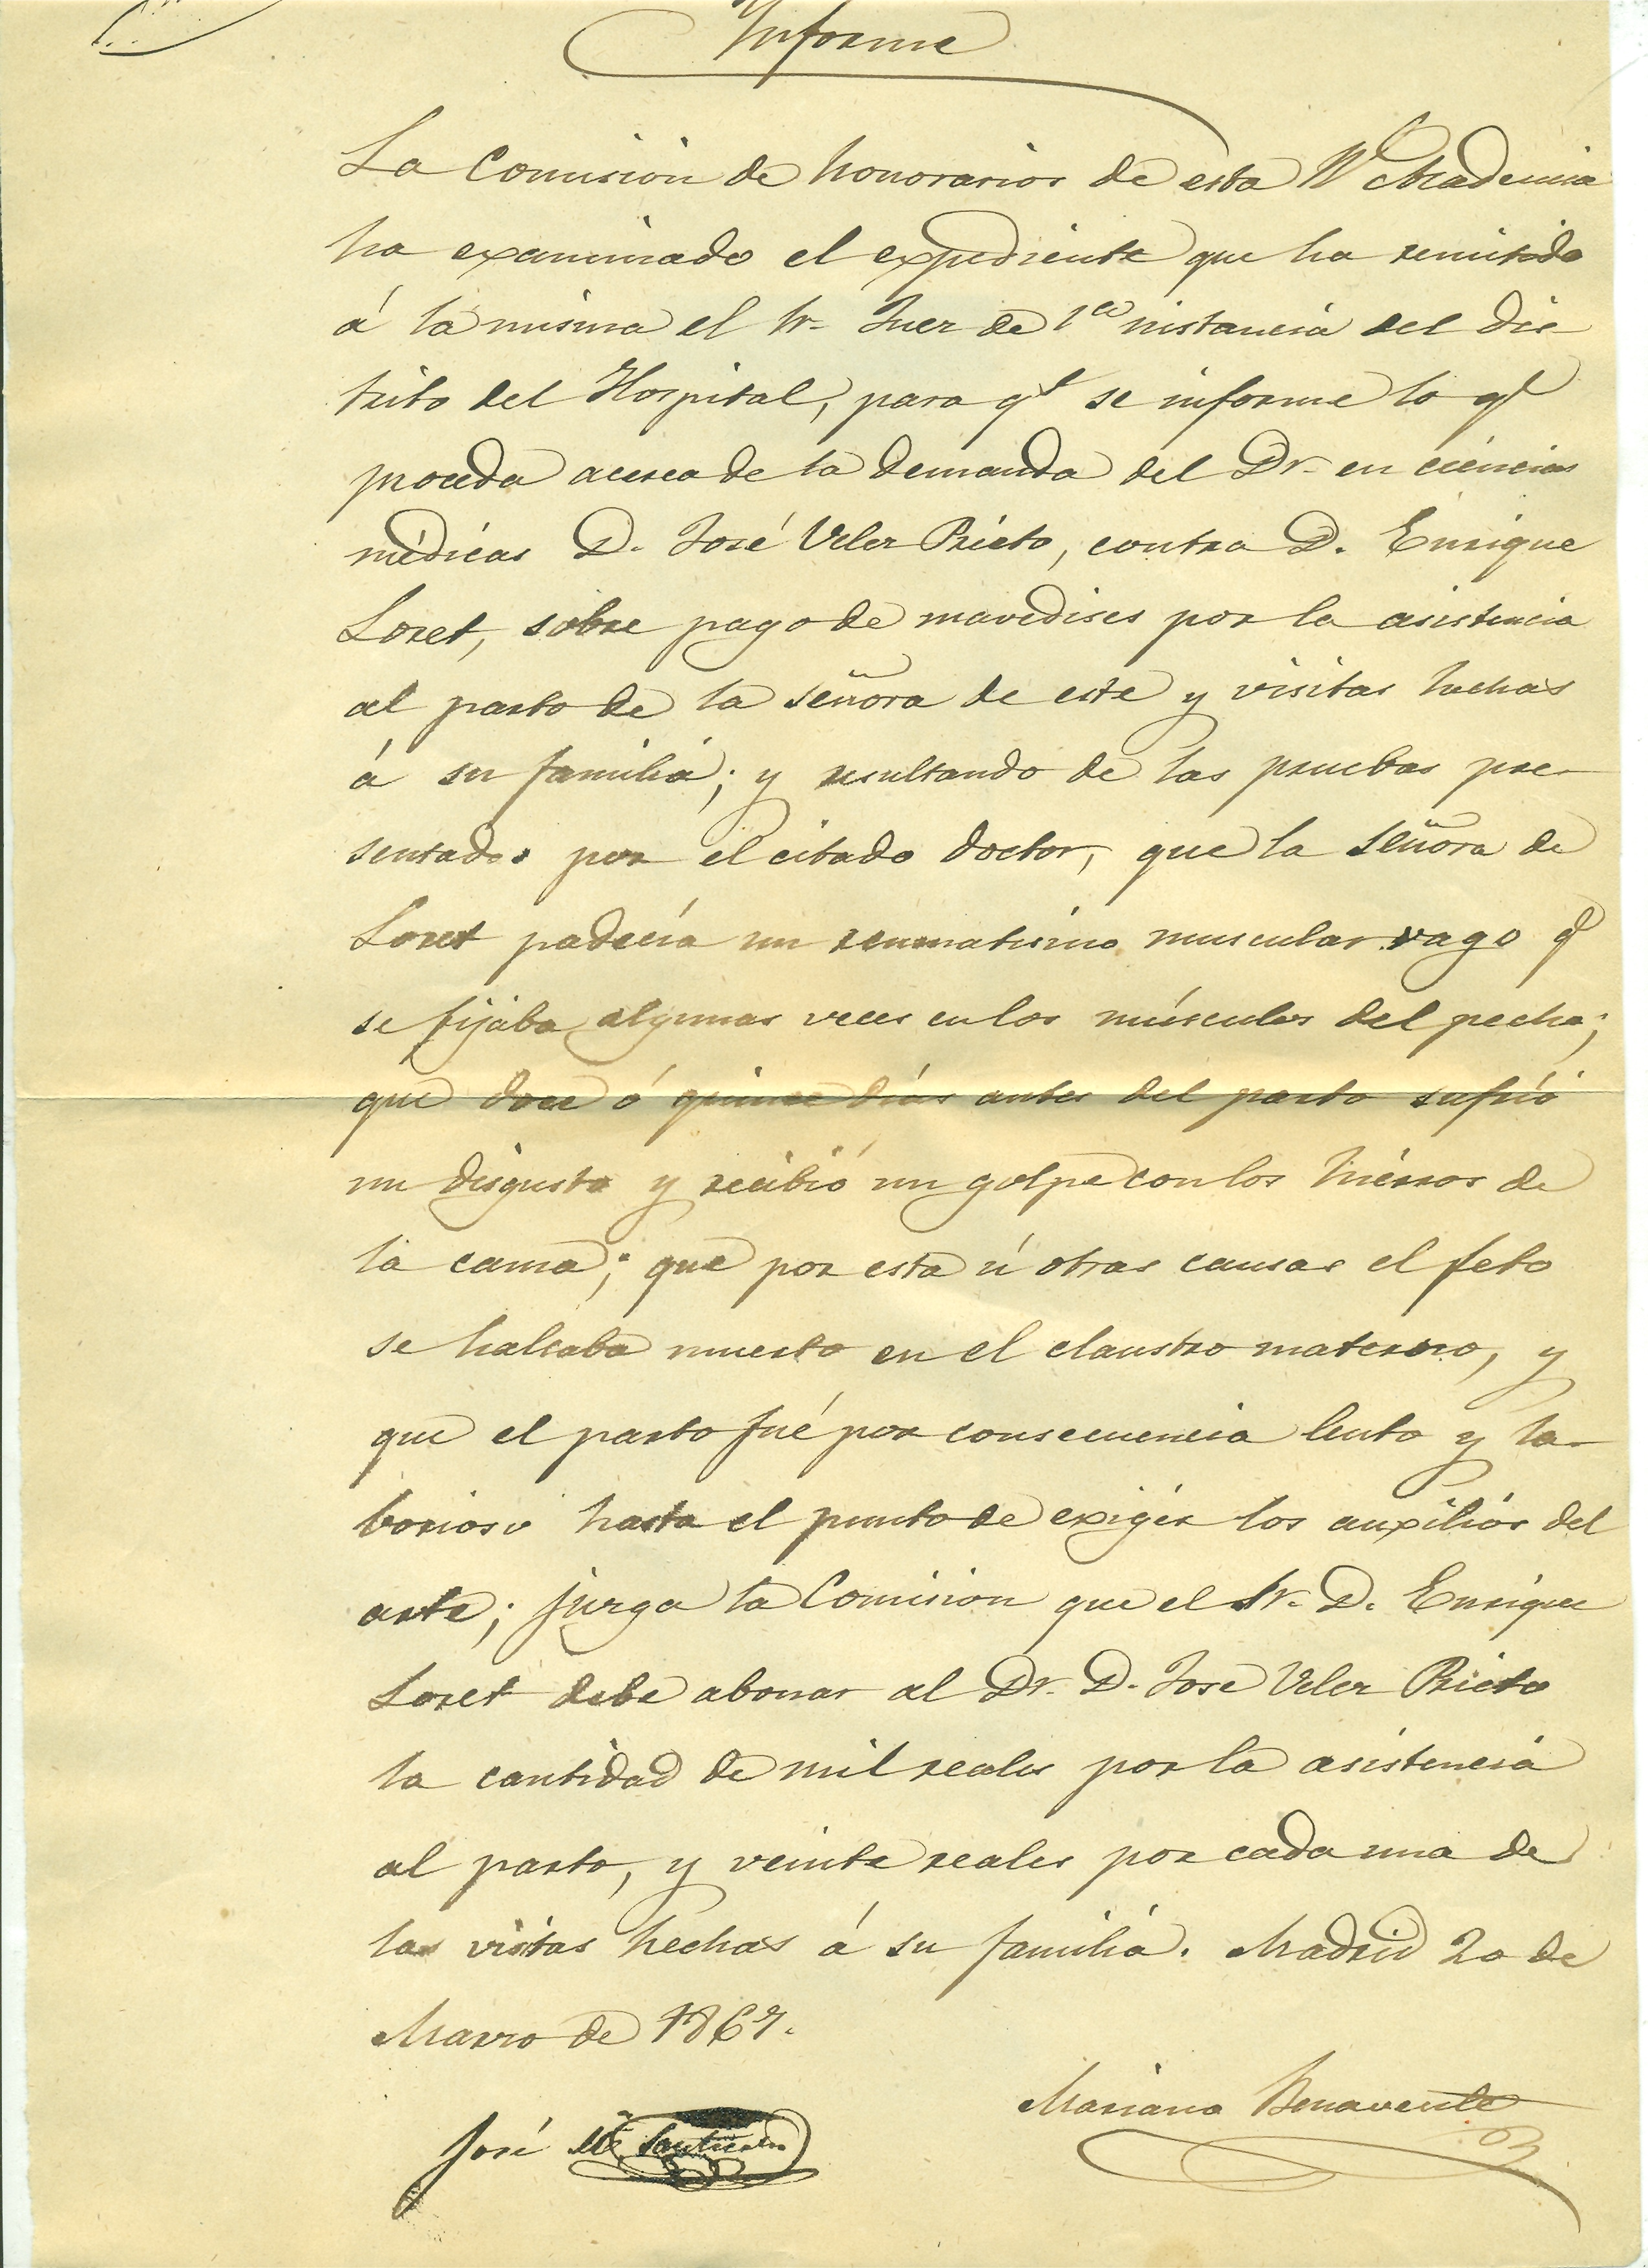 Informe
La Comision de honorarios de esta Rl Academia
ha examinado el expediente que ha remitido
á la misma el Sr. Juez de 1ª instancia del dis
trito del Hospital, para qe se informe lo qe
proceda acerca de la demanda del Dr. en ciencias
médicas D. José Velez Prieto, contra D. Enrique
Loret, sobre pago de maravedises por la asistencia
al parto de la señora de este y visitas hechas
á su familia; y resultando de las pruebas pre-
sentadas por el citado doctor, que la señora de
Loret padecía un reumatismo muscular vago qe
se fijaba algunas veces en los músculos del pecho;
que doce ó quince dias antes del parto sufrió
un disgusto y recibió un golpe con los hierros de
la cama; que por esta ú otras causas el feto
se hallaba muerto en el claustro materno, y
que el parto fué por consecuencia lento y la-
borioso hasta el punto de exigir los auxilios del
arte; juzga la Comision que el Sr. D. Enrique
Loret debe abonar al Dr. D. Jose Velez Prieto
la cantidad de mil reales por la asistencia
al parto, y veinte reales por cada una de
las visitas hechas á su familia. Madrid 20 de
Marzo de 1867.
Mariano Benavente
José Mª Santucho